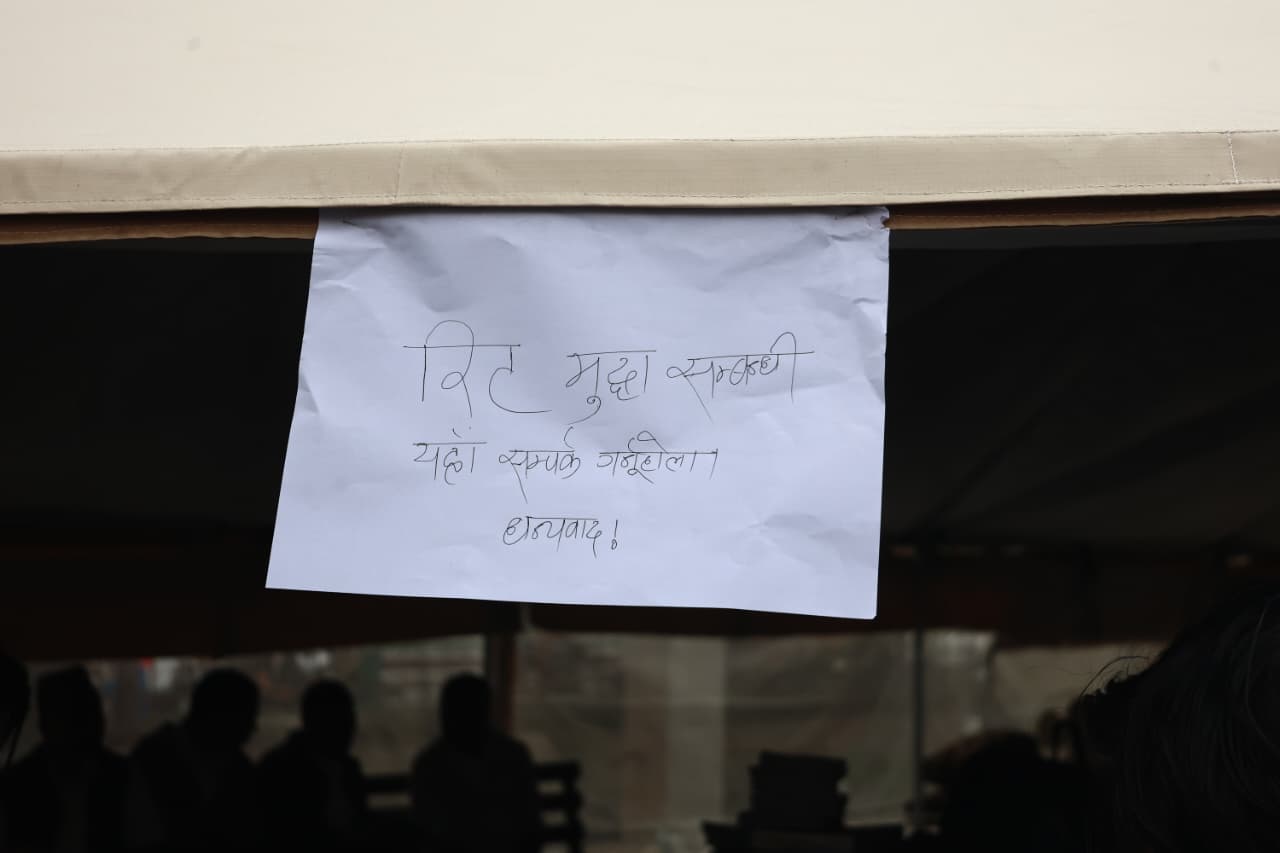 रिट मुद्दा सम्बन्धी
यहाँ सम्पर्क गर्नूहोला।
धन्यवाद!